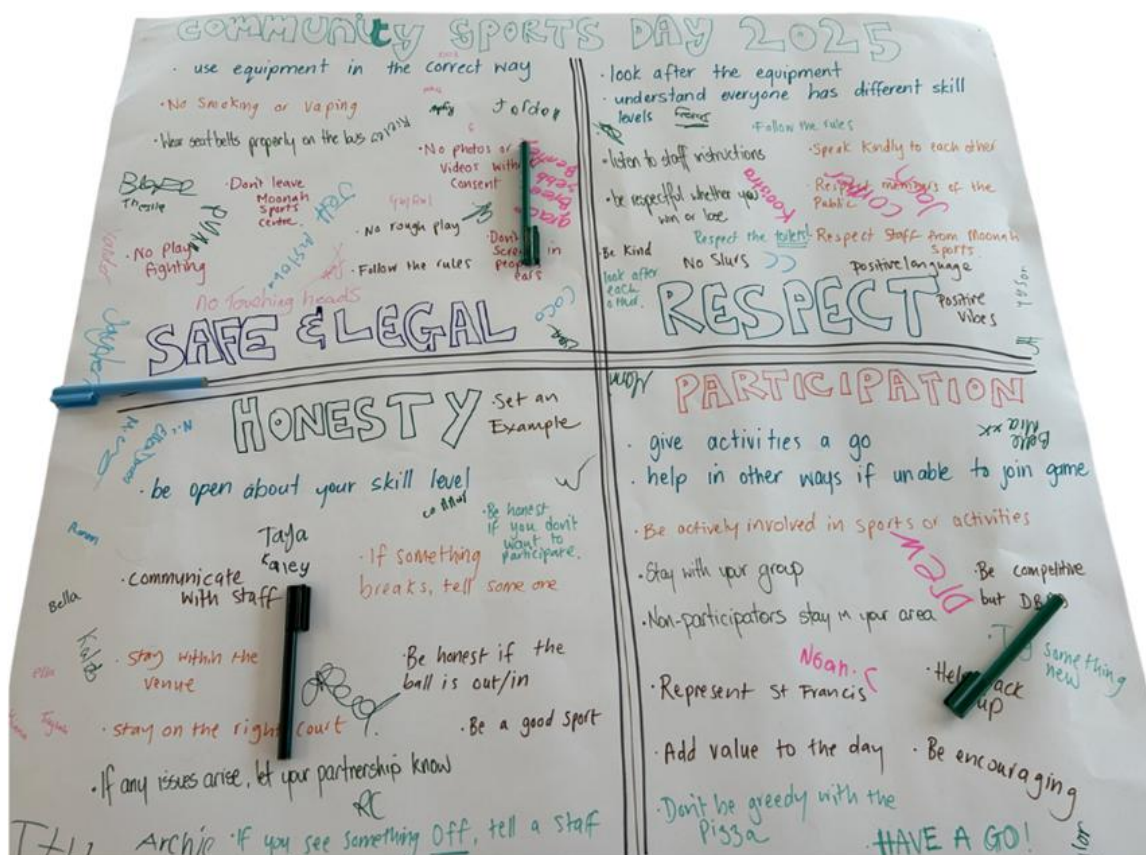 COMMUNITY SPORTS DAY 2025
· use equipment in the correct way
· No Smoking or Vaping
· Wear seatbelts properly on the bus
Jordan
· No photos or
Videos with
Consent
· Don't leave
Moonah
Sports
centre.
Jett
· No rough play
· No play
fighting
· Follow the rules
· Don't
in
ears
No Touching heads
coco
SAFE & LEGAL
Jayden
· look after the equipment
· understand everyone has different skill
levels
· Follow the rules
· listen to staff instructions
· Speak Kindly to each other
· be respectful whether you
win or lose
Kooistra
· Respect members of the
Public
· Be Kind
Respect the toilets!
· Respect Staff from Moonah
Sports
look after
each
other.
No Slurs
positive language
Positive
Vibes
RESPECT
HONESTY
· Set an
Example
· be open about your skill level
· Be honest
if you don't
want to
participate.
Taja
· If something
breaks, tell some one
· Communicate
with staff
Bella
Kaleb
ella
· Stay within the
venue
· Be honest if the
ball is out/in
· stay on the right court
· Be a good sport
· If any issues arise, let your partnership know
RC
Archie
· If you see something Off, tell a staff
PARTICIPATION
Belle
Mia xx
· give activities a go
· help in other ways if unable to join game
· Be actively involved in sports or activities
Drew
· Stay with your group
· Be competitive
but
· Non-participators stay in your area
something
new
Noah.S
· Represent St Francis
up
· Add value to the day
· Be encouraging
· Don't be greedy with the
Pizza
HAVE A GO!